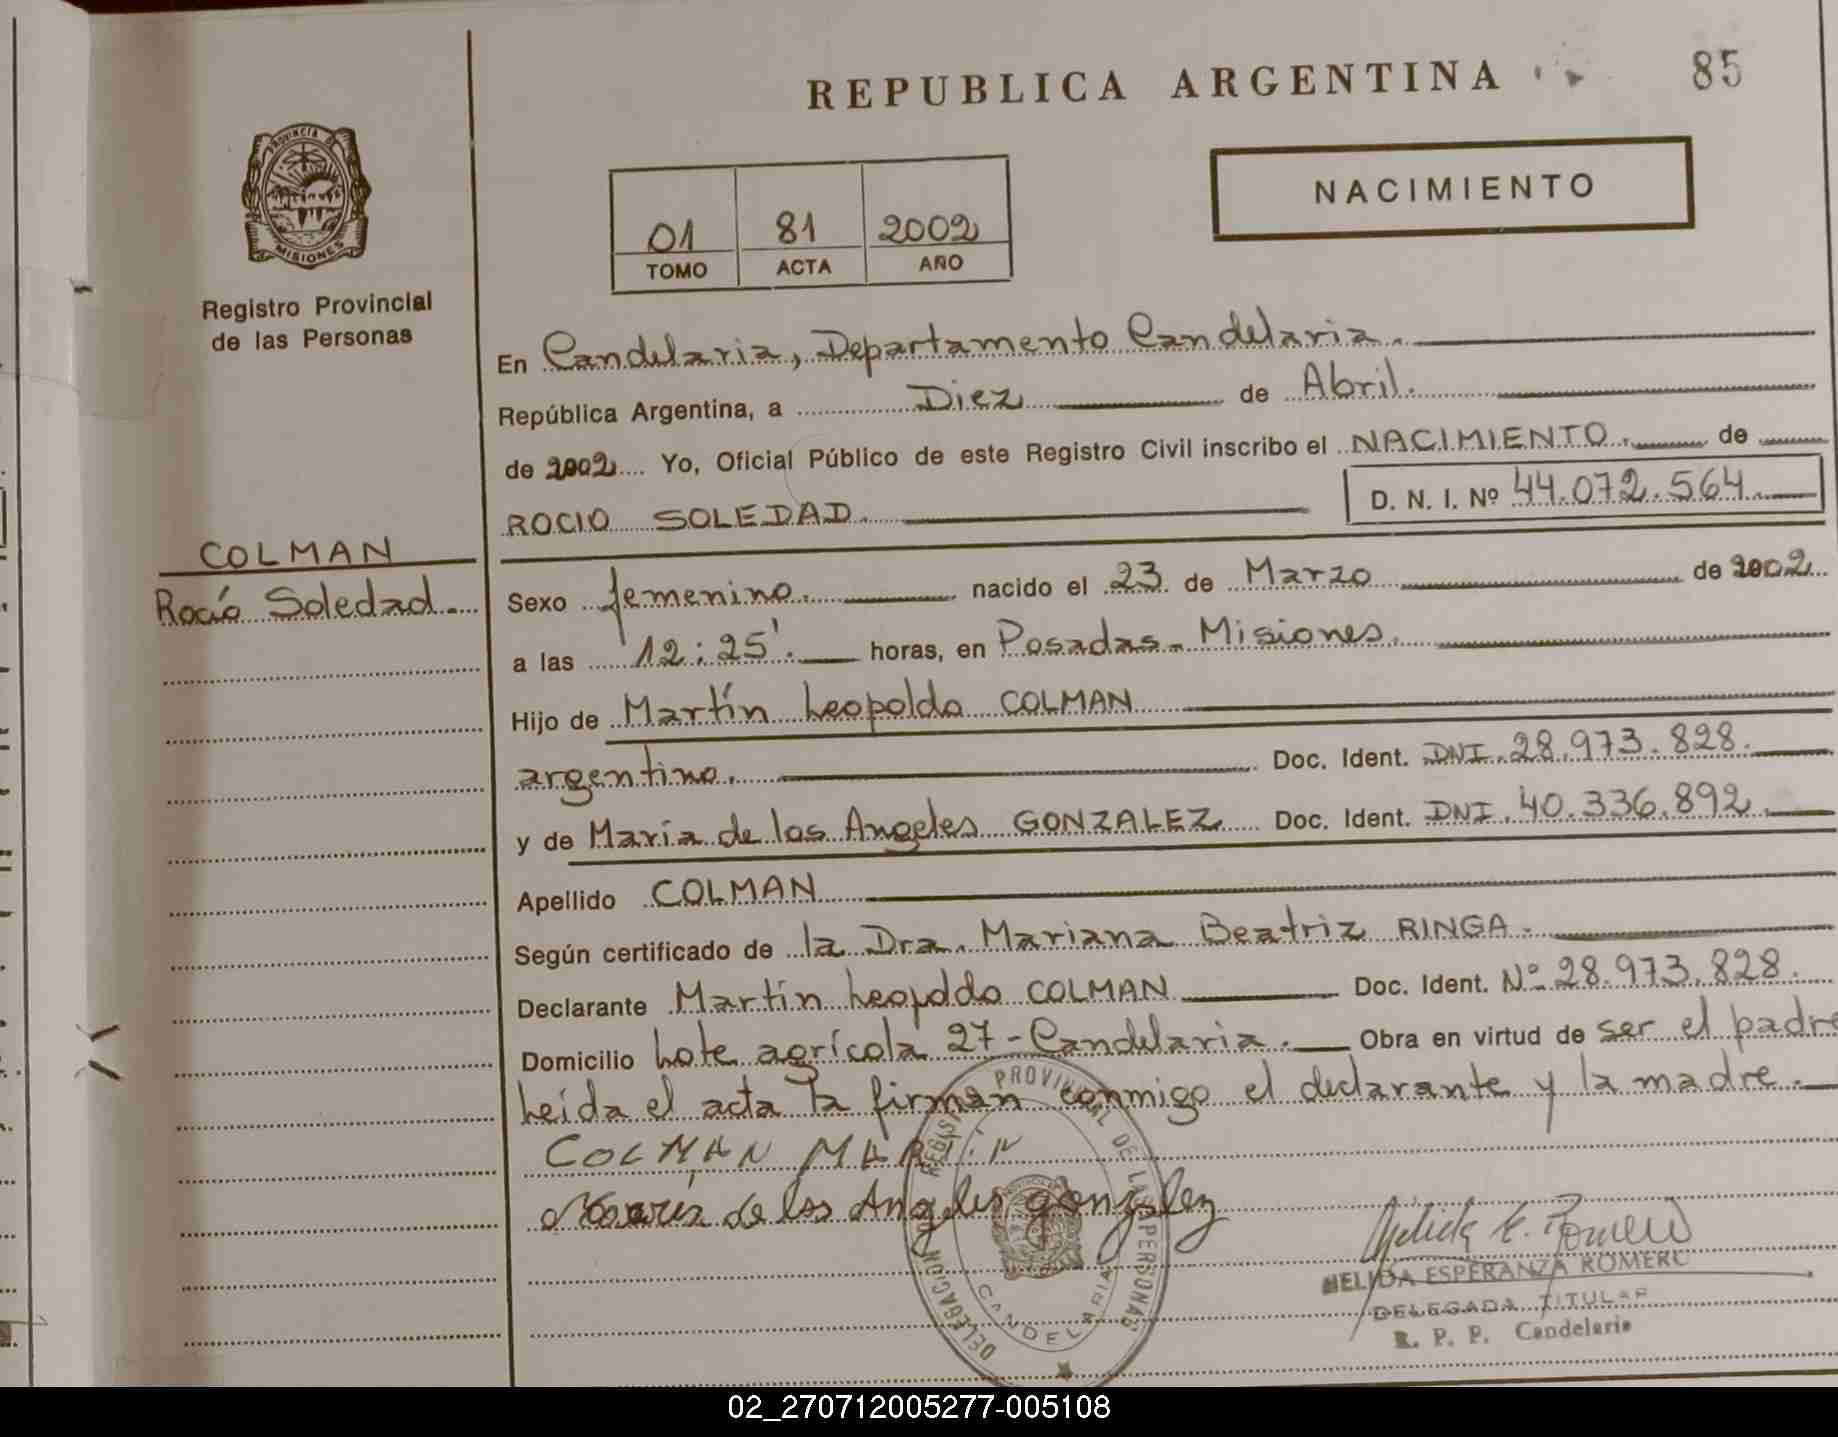 REPUBLICA ARGENTINA
85
PROVINCIA DE
MISIONES
Registro Provincial
de las Personas
01 81 2002
TOMO ACTA AÑO
NACIMIENTO
En Candelaria, Departamento Candelaria.
República Argentina, a Diez de Abril.
de 2002 Yo, Oficial Público de este Registro Civil inscribo el NACIMIENTO. de
ROCIO SOLEDAD. D. N. I. Nº 44.072.564.
COLMAN
Rocío Soledad.
Sexo femenino. nacido el 23 de Marzo de 2002
a las 12:25'. horas, en Posadas - Misiones.
Hijo de Martín Leopoldo COLMAN
argentino. Doc. Ident. DNI. 28.973.828.
y de María de los Angeles GONZALEZ Doc. Ident. DNI. 40.336.892.
Apellido COLMAN
Según certificado de la Dra. Mariana Beatriz RINGA.
Declarante Martín Leopoldo COLMAN Doc. Ident. Nº 28.973.828.
Domicilio Lote agrícola 27 - Candelaria. Obra en virtud de ser el padre
Leída el acta la firman conmigo el declarante y la madre.
COLMAN MARTIN
María de los Angeles gonzalez
REGISTRO PROVINCIAL DE LAS PERSONAS
DELEGACION
CANDELARIA
Nelida E. Romero
NELIDA ESPERANZA ROMERO
DELEGADA TITULAR
R. P. P. Candelaria
02_270712005277-005108